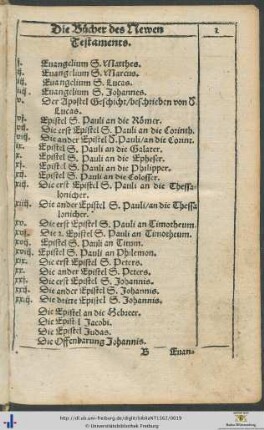 Die Bücher des Newen
1
Testaments.
j. Euangelium S. Matthes.
ij. Euangelium S. Marcus.
iij. Euangelium S. Lucas.
iiij. Euangelium S. Johannes.
v. Der Apostel Geschicht/beschrieben von S.
Lucas.
vj. Epistel S. Pauli an die Römer.
vij. Die erst Epistel S. Pauli an die Corinth.
viij. Die ander Epistel S. Pauli/an die Corint.
ix. Epistel S. Pauli an die Galater.
x. Epistel S. Pauli an die Epheser.
xj. Epistel S. Pauli an die Philipper.
xij. Epistel S. Pauli an die Colosser.
xiij. Die erst Epistel S. Pauli an die Thessa
lonicher.
xiiij. Die ander Epistel S. Pauli/an die Thessa
lonicher.
xv. Die erst Epistel S. Pauli an Timotheum.
xvj. Die 2. Epistel S. Pauli an Timotheum.
xvij. Epistel S. Pauli an Titum.
xviij. Epistel S. Pauli an Philemon.
xix. Die erst Epistel S. Peters.
xx. Die ander Epistel S. Peters.
xxj. Die erst Epistel S. Johannis.
xxij. Die ander Epistel S. Johannis.
xxiij. Die dritte Epistel S. Johannis.
Die Epistel an die Hebreer.
Die Epistel Jacobi.
Die Epistel Judas.
Die Offenbarung Johannis.
B Euan-
© Universitätsbibliothek Freiburg